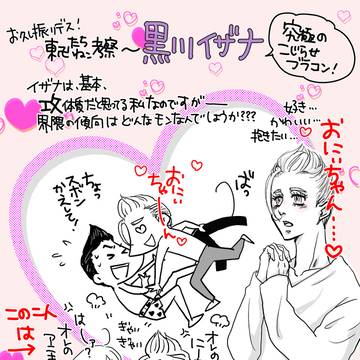 お久し振りデス!
東リべたちねこ考察〜黒川イザナ
究極の
こじらせ
ブラコン!
イザナは、基本、
攻体質だと思ってる私なのですが――
界隈の傾向はどんなモンなんでしょうか???
好き…
かわいい…
抱きたい…
おにいちゃん…♡
ばっ
おにぃ
ちゃーん♡
ちょっ
ズボン
かえして!
きゃい
きゃい
この二人
のは→
オレの